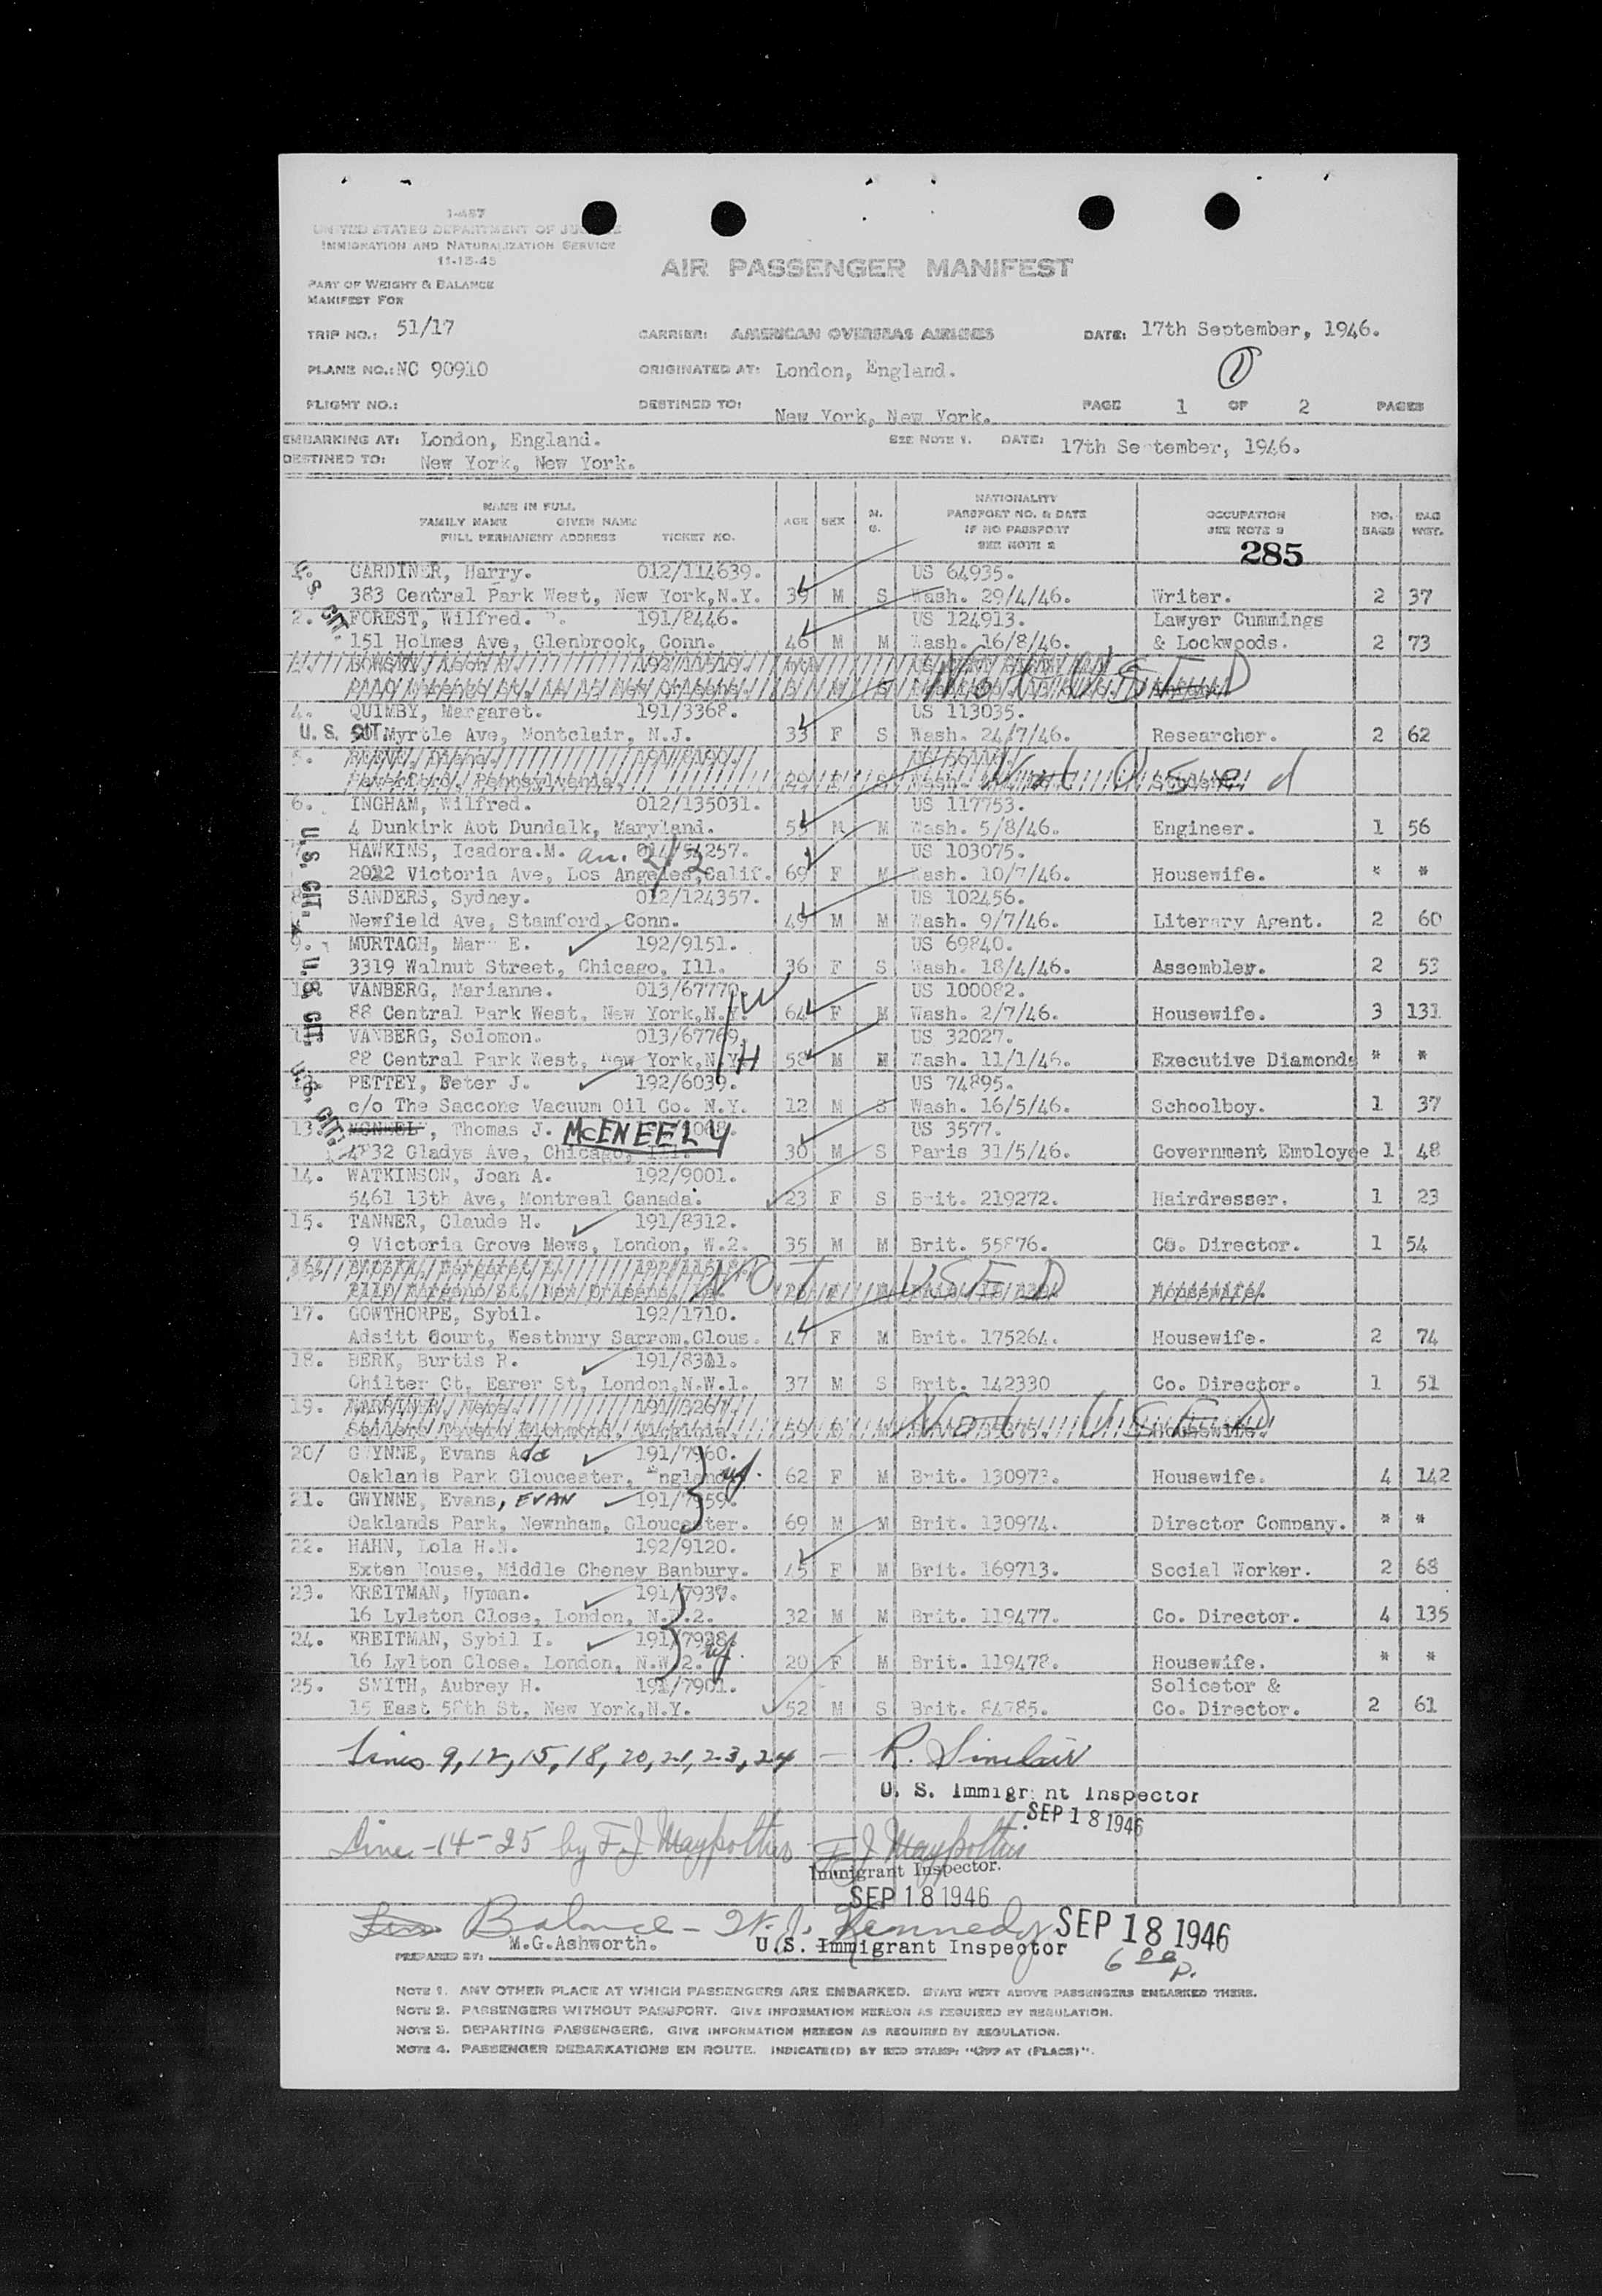 1-457
UNITED STATES DEPARTMENT OF JUSTICE
IMMIGRATION AND NATURALIZATION SERVICE
11-15-45
AIR PASSENGER MANIFEST
PART OF WEIGHT & BALANCE
MANIFEST FOR
TRIP NO.: 51/17 CARRIER: AMERICAN OVERSEAS AIRLINES DATE: 17th September, 1946.
PLANE NO.: NC 90910 ORIGINATED AT: London, England. 1
FLIGHT NO.: DESTINED TO: New York, New York. PAGE 1 OF 2 PAGES
EMBARKING AT: London, England. SEE NOTE 1. DATE: 17th September, 1946.
DESTINED TO: New York, New York.
NAME IN FULL
FAMILY NAME GIVEN NAME
FULL PERMANENT ADDRESS TICKET NO. AGE SEX M. S. NATIONALITY PASSPORT NO. & DATE IF NO PASSPORT SEE NOTE 2 OCCUPATION SEE NOTE 3 NO. BAGS BAG WGT.
285
1. GARDINER, Harry. 012/114639. US 64935.
U.S. CIT. 383 Central Park West, New York,N.Y. 39 M S Wash. 29/4/46. Writer. 2 37
2. FOREST, Wilfred. 191/8446. US 124913. Lawyer Cummings
151 Holmes Ave, Glenbrook, Conn. 46 M M Wash. 16/8/46. & Lockwoods. 2 73
NOT USED
4. QUIMBY, Margaret. 191/3368. US 113035.
U. S. CIT. Myrtle Ave, Montclair, N.J. 33 F S Wash. 24/7/46. Researcher. 2 62
5. Not Used
Haverford, Pennsylvania.
6. INGHAM, Wilfred. 012/135031. US 117753.
4 Dunkirk Aot Dundalk, Maryland. 55 M M Wash. 5/8/46. Engineer. 1 56
U. S. CIT.
7. HAWKINS, Icadora.M. US 103075.
2022 Victoria Ave, Los Angeles,Calif. 69 F M Wash. 10/7/46. Housewife. * *
8. SANDERS, Sydney. 012/124357. US 102456.
Newfield Ave, Stamford, Conn. 49 M M Wash. 9/7/46. Literary Agent. 2 60
9. MURTAGH, Mary E. 192/9151. US 69840.
3319 Walnut Street, Chicago, Ill. 36 F S Wash. 18/4/46. Assembler. 2 53
U.S. CIT.
10. VANBERG, Marianne. 013/67770. US 100082.
88 Central Park West, New York,N.Y. W 64 F M Wash. 2/7/46. Housewife. 3 131
11. VANBERG, Solomon. 013/67769. US 32027.
88 Central Park West, New York,N.Y. H 58 M M Wash. 11/1/46. Executive Diamonds * *
U.S. CIT.
PETTEY, Peter J. 192/6039. US 74895.
c/o The Saccone Vacuum Oil Co. N.Y. 12 M S Wash. 16/5/46. Schoolboy. 1 37
13. , Thomas J. McENEELY US 3577.
4732 Gladys Ave, Chicago, Ill. 30 M S Paris 31/5/46. Government Employee 1 48
14. WATKINSON, Joan A. 192/9001.
5461 13th Ave, Montreal Canada. 23 F S Brit. 219272. Hairdresser. 1 23
15. TANNER, Claude H. 191/8312.
9 Victoria Grove Mews, London, W.2. 35 M M Brit. 55876. Co. Director. 1 54
16. NOT USED
Housewife.
17. GOWTHORPE, Sybil. 192/1710.
Adsitt Court, Westbury Sarrom.Glous. 47 F M Brit. 175264. Housewife. 2 74
18. BERK, Burtis R. 191/8311.
Chilter Ct, Earer St, London,N.W.1. 37 M S Brit. 142330 Co. Director. 1 51
19. Not USED
20/ GWYNNE, Evans Ada 191/7960.
Oaklands Park Gloucester, England. wf. 62 F M Brit. 130973. Housewife. 4 142
21. GWYNNE, Evans, EVAN 191/7959.
Oaklands Park, Newnham, Gloucester. 69 M M Brit. 130974. Director Company. * *
22. HAHN, Lola H.N. 192/9120.
Exten House, Middle Cheney Banbury. 45 F M Brit. 169713. Social Worker. 2 68
23. KREITMAN, Hyman. 191/7937.
16 Lyleton Close, London, N.W.2. 32 M M Brit. 119477. Co. Director. 4 135
24. KREITMAN, Sybil I. 191/7938.
16 Lylton Close, London, N.W.2. wf. 20 F M Brit. 119478. Housewife. * *
25. SMITH, Aubrey H. 191/7901. Solicetor &
15 East 58th St, New York,N.Y. 52 M S Brit. 84785. Co. Director. 2 61
Lines 9, 12, 15, 18, 20, 21, 23, 24 — R. Sinclair
U. S. Immigrant Inspector
SEP 18 1946
Line - 14 - 25 by F.J. Maypother F J Maypother
Immigrant Inspector.
SEP 18 1946
Balance - W. J. Kennedy SEP 18 1946
PREPARED BY: M.G.Ashworth. U.S. Immigrant Inspector
6 00 P.
NOTE 1. ANY OTHER PLACE AT WHICH PASSENGERS ARE EMBARKED. STATE NEXT ABOVE PASSENGERS EMBARKED THERE.
NOTE 2. PASSENGERS WITHOUT PASSPORT. GIVE INFORMATION HEREON AS REQUIRED BY REGULATION.
NOTE 3. DEPARTING PASSENGERS. GIVE INFORMATION HEREON AS REQUIRED BY REGULATION.
NOTE 4. PASSENGER DEBARKATIONS EN ROUTE. INDICATE(D) BY RED STAMP: "OFF AT (PLACE)".